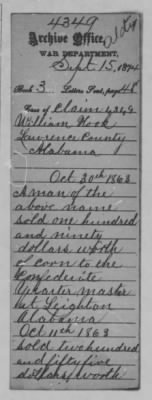 4349
Archive Office,
WAR DEPARTMENT,
Sept. 15, 1874
Book 3 Letters Sent, page 48
Case of Claim 4349
William Hook
Lawrence County
Alabama
Oct 30th 1863
A man of the
above name
sold one hundred
and ninety
dollars worth
of corn to the
Confederate
Quarter master
at Leighton
Alabama
Oct 11th 1863
sold two hundred
and fifty five
dollars, worth